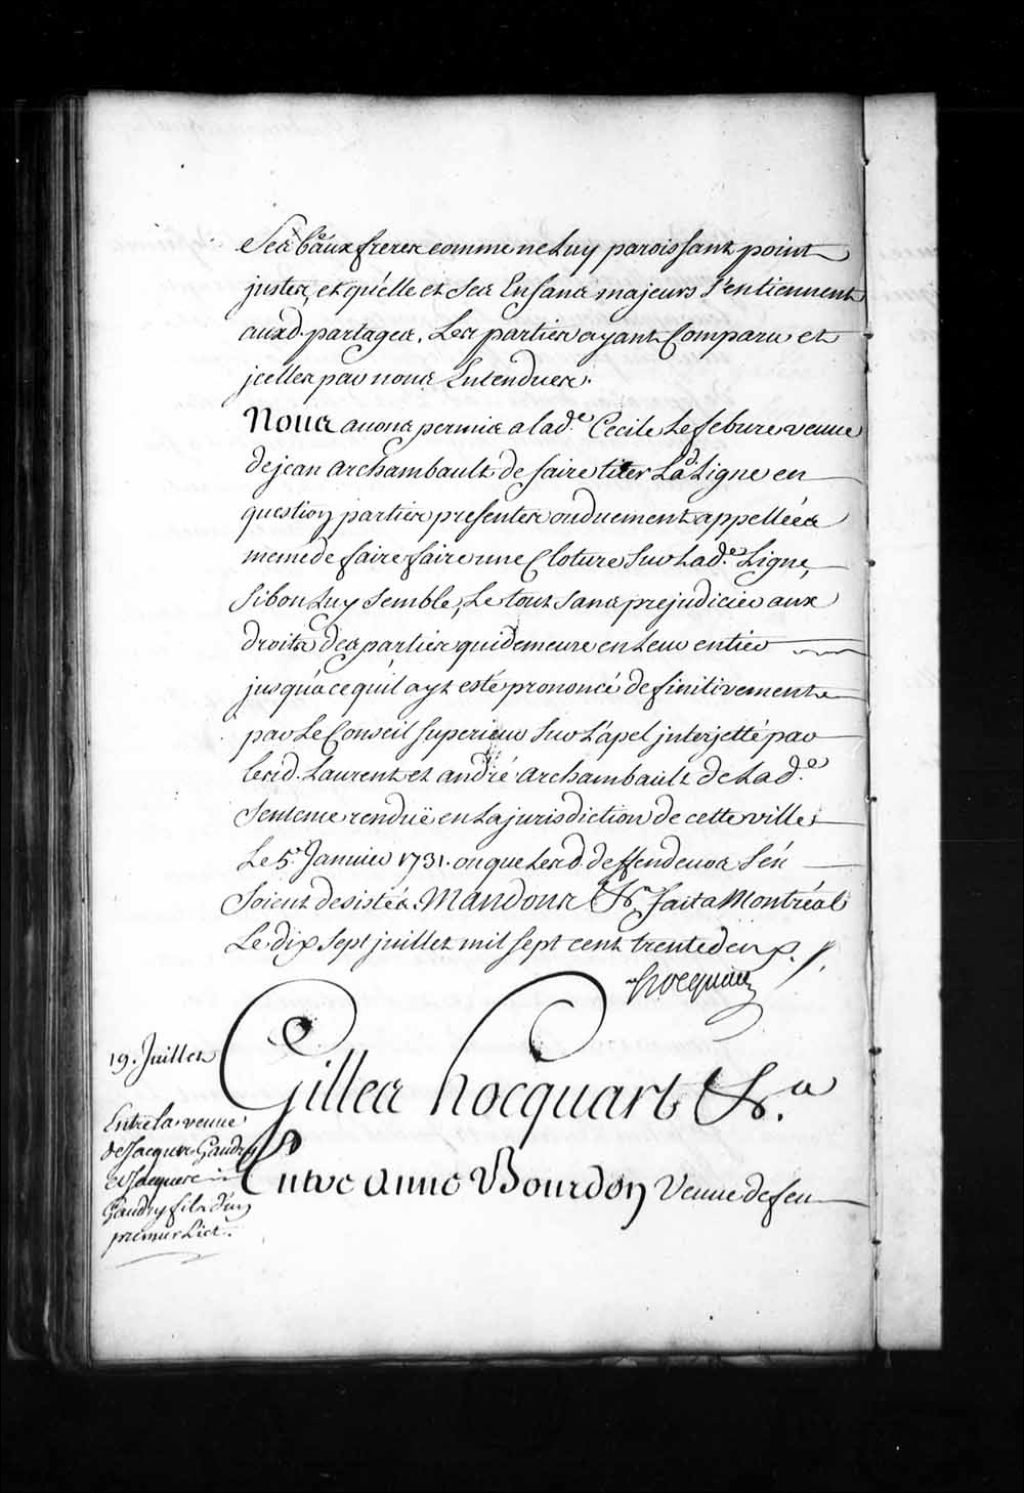 Ses beaux freres comme ne Luy paroissant point
justes, et qu'elle et ses Enfans majeurs s'en tiennent
auxd. partages, Les parties ayant Comparu et
jcelles par nous Entendues.
Nous avons permis a lad.e Cecile Lefebure veuue
de jean archambault de faire tirer Lad Ligne en
question parties presentes ou duement appellées
meme de faire faire une Cloture sur Lad.e Ligne,
si bon Luy semble, Le tout sans prejudicier aux
droits des parties qui demeure en Leur entier
jusqu'a ce qu'il ayt esté prononcé definitivement
par Le Conseil Superieur sur L'apel jnterjetté par
lesd. Laurent et andré archambault de Lad.e
sentence renduë en La jurisdiction de cette ville
Le 5.e Janvier 1731. ou que Lesd. deffendeurs s'en
soient desistés. Mandons &.a fait a Montréal
Le dix sept juillet mil sept cent trente deux.
hocquart
19. Juillet
Gilles hocquart &.a
Entre la veuue
de Jacques Gaudry
et Jacques
Gaudry fils d'un
premier Lict.
Entre anne Bourdon Veuue de feu